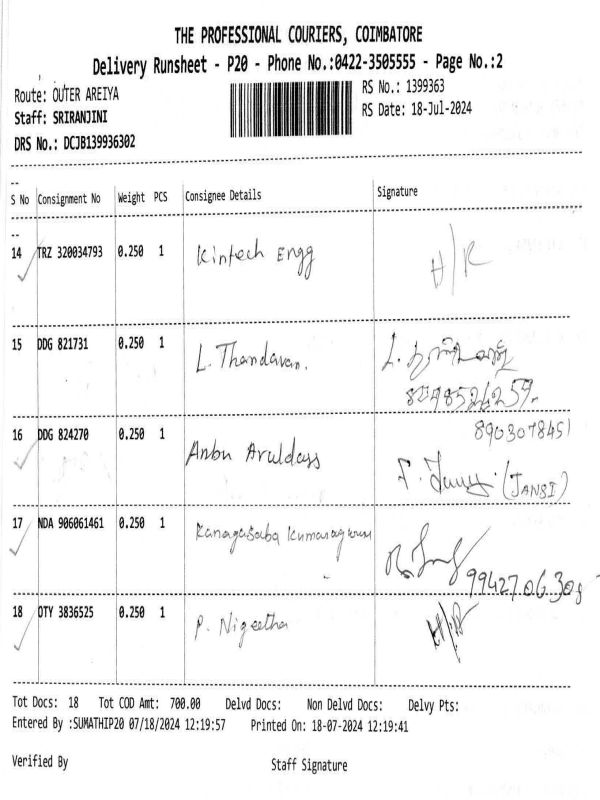 THE PROFESSIONAL COURIERS, COIMBATORE
Delivery Runsheet - P20 - Phone No.:0422-3505555 - Page No.:2
Route: OUTER AREIYA
RS No.: 1399363
Staff: SRIRANJINI
RS Date: 18-Jul-2024
DRS No.: DCJB139936302
--
S No Consignment No Weight PCS Consignee Details Signature
--
14 TRZ 320034793 0.250 1 Kintech Engg H/R
15 DDG 821731 0.250 1 L. Thandavan. L.
16 DDG 824270 0.250 1 Anbu Aruldass 8903078451
(JANSI)
17 NDA 906061461 0.250 1 Kanagasaba
99427.06.308
18 OTY 3836525 0.250 1 P. Nigeetha H/R
Tot Docs: 18 Tot COD Amt: 700.00 Delvd Docs: Non Delvd Docs: Delvy Pts:
Entered By :SUMATHIP20 07/18/2024 12:19:57 Printed On: 18-07-2024 12:19:41
Verified By Staff Signature